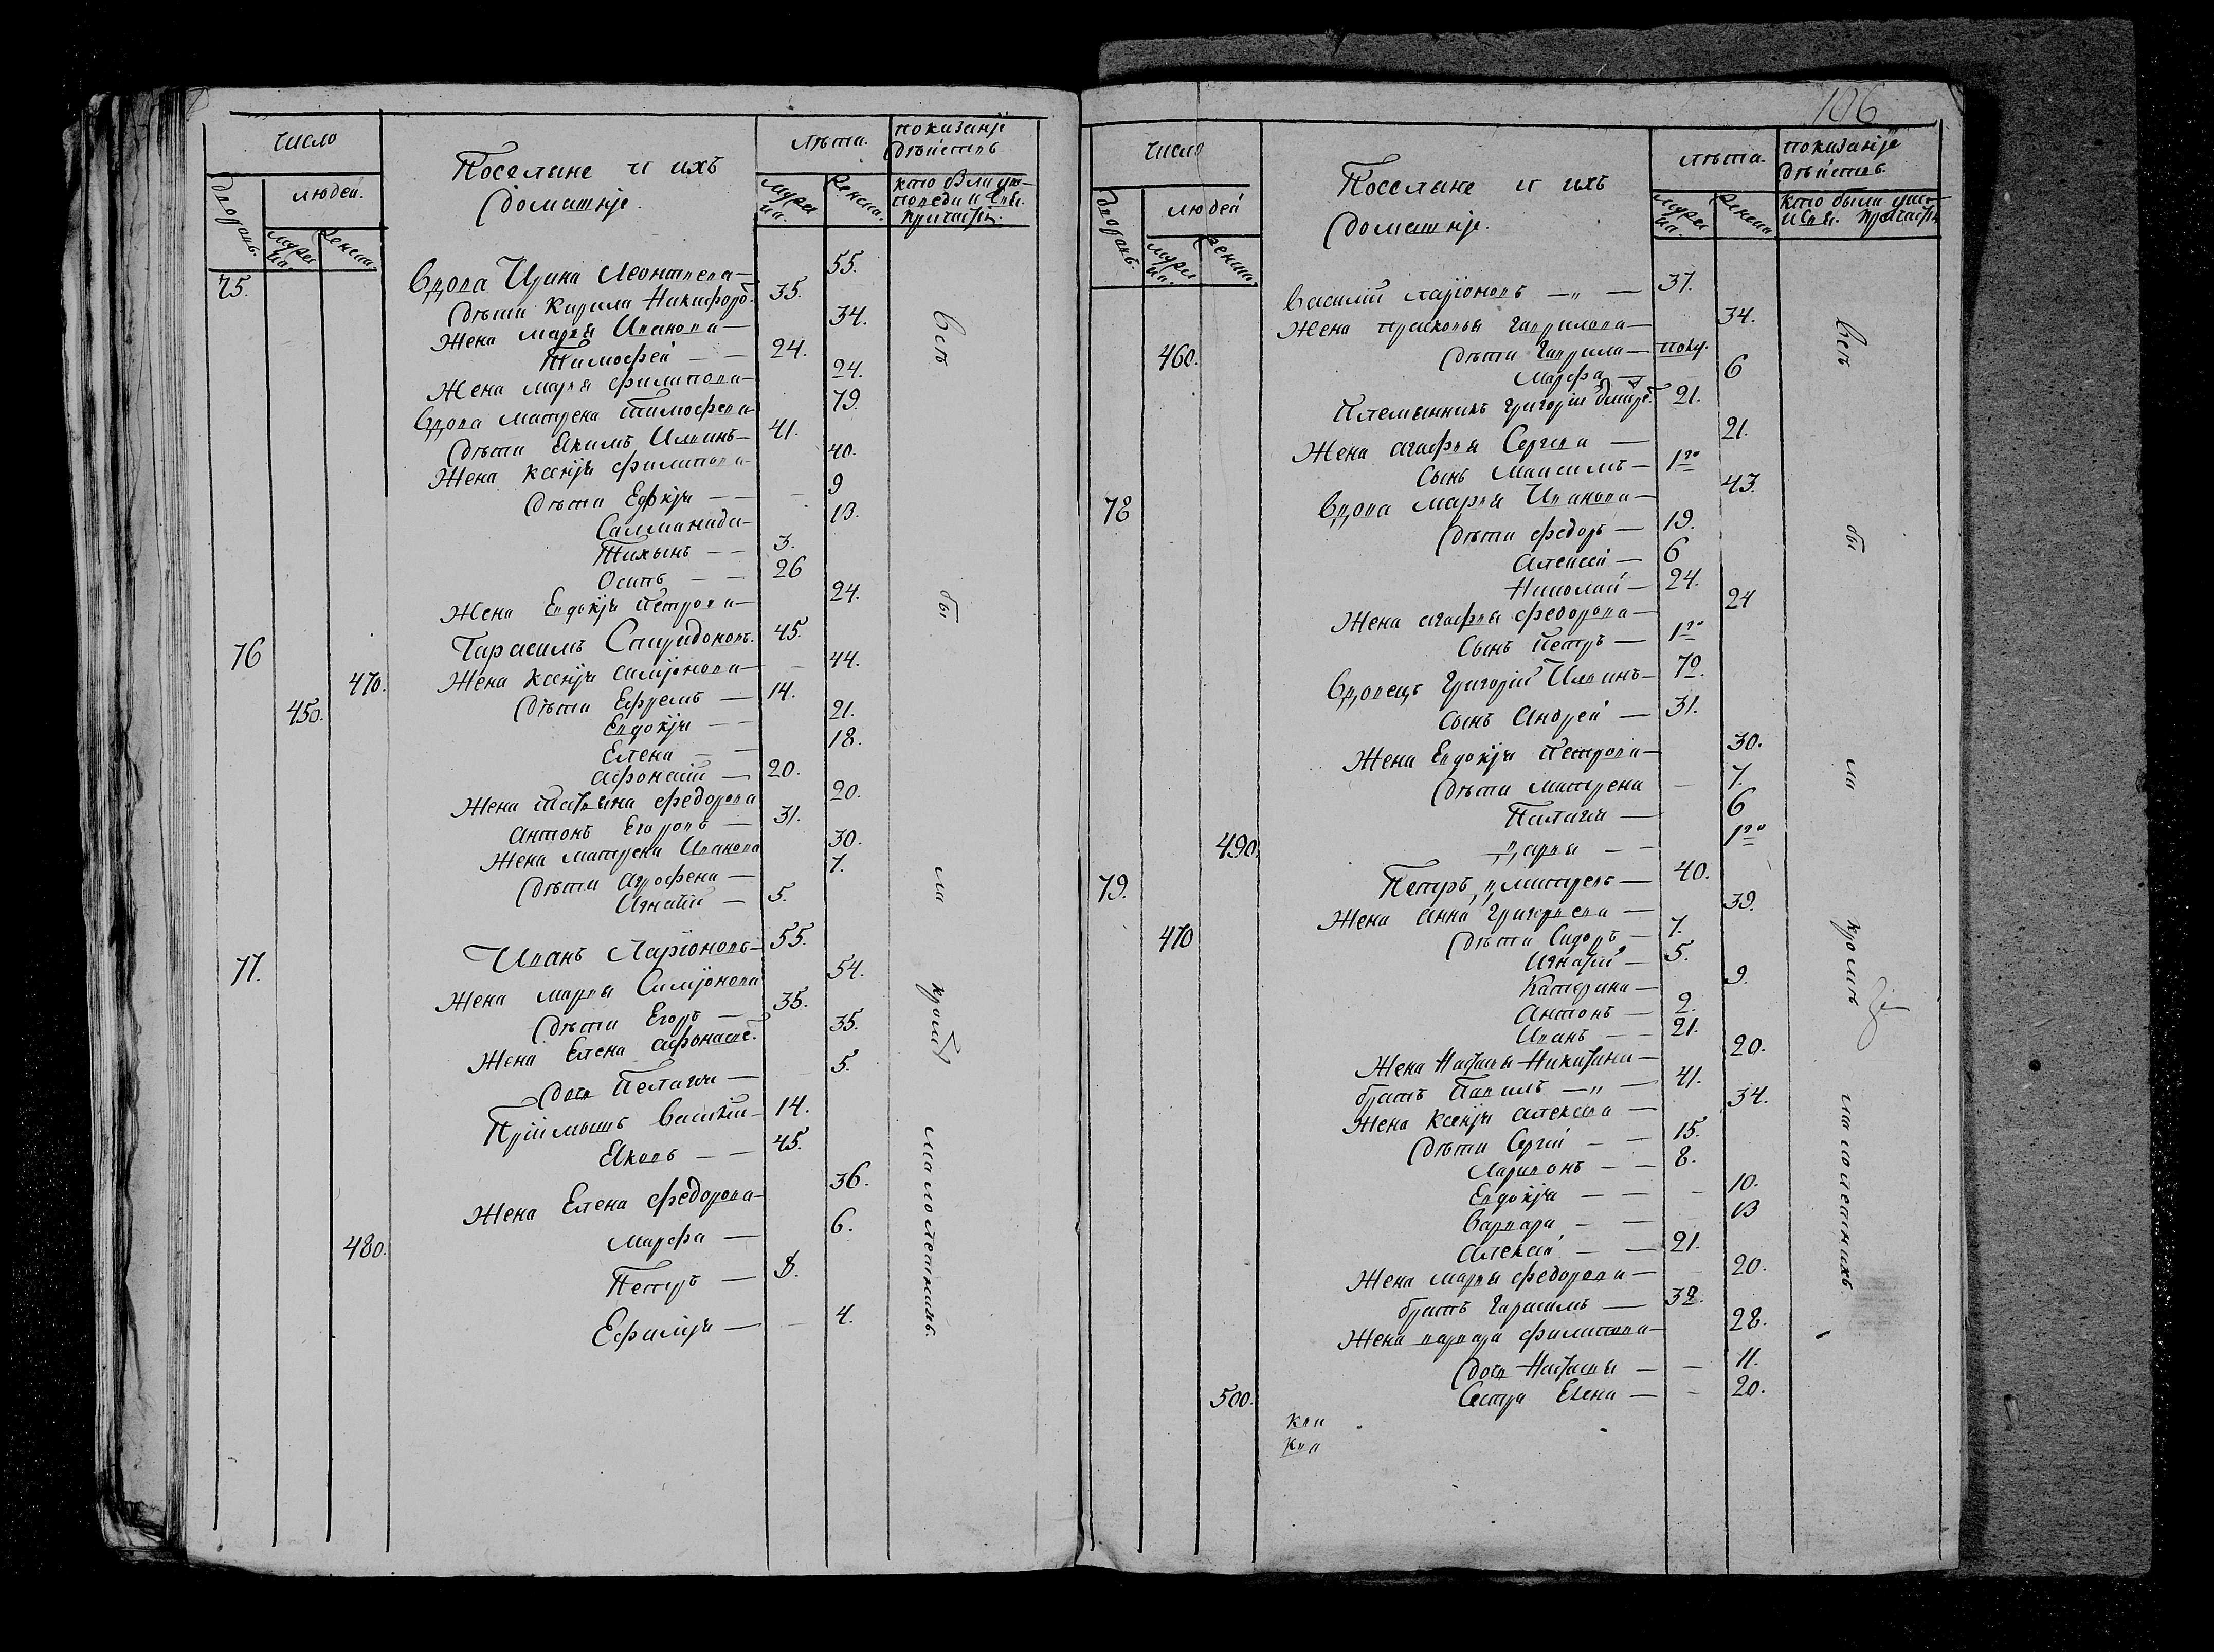 число
Поселяне и ихъ
Домашнiе.
лѣта.
показанiе
дѣйствъ
дворовъ.
людей.
мужеска.
женска.
мужеска.
женска.
кто были у исповѣди и Свя. причастiи.
75.
Вдова Ирина Леонтьева — 55.
Дѣти Кирила Никифоро. 35.
Жена марья Иванова — 34.
Тимофей — — 24.
Жена марья филипова — 24.
Вдова матрена тимофева — 79.
Дѣти Екимъ Илвинъ — 41.
Жена ксенiя филипова — 40.
Дѣти Евкiя — — 9
Салманида — 13.
Тихынъ — — 3.
Осипъ — — 26
Жена Евдокiя Петрова — 24.
76 Гарасимъ Спиридоновъ. 45.
470. Жена ксенiя симiонова — 44.
450. Дѣти Ефремъ — 14.
Евдокiя — — 21.
Елена — — 18.
афонасiй — 20.
Жена татьяна федорова 20.
антонъ Егоровъ — 31.
Жена матрена Иванова 30.
Дѣти Агрофена — 7.
Игнатiй — 5.
77. Иванъ Ларiоновъ — 55.
Жена марья Симiонова 54.
Дѣти Егоръ — 35.
Жена Елена афонасие. 35.
Дочь Пелагия — 5.
Прiимышъ Василiй — 14.
Яковъ — — 45.
Жена Елена федорова — 36.
480. марфа — 6.
Петръ — 8.
Ефимiя — 4.
Всѣ бы ли кромѣ малолетнихъ.
106
число
Поселяне и ихъ
Домашнiе.
лѣта.
показанiе
дѣйствъ.
дворовъ.
людей
мужеска.
женска.
мужеска.
женска.
кто были у исп.
и Свя. причастiи
Василiй ларiоновъ — „ — 37.
Жена прасковья гаврилова — 34.
460. Дѣти гаврила — полу.
Марфа — 6
Племянникъ григорiй дмитре. 21.
Жена агафья Сергева — 21.
Сынъ Максимъ — 1го
78 Вдова марья Иванова — 43.
Дѣти федоръ — 19.
алексей — 6
Николай — 24.
Жена агафья федорова — 24
Сынъ Петръ — 1го
Вдовецъ григорiй Илвинъ — 70.
Сынъ Андрей — 31.
Жена Евдокiя Петрова — 30.
Дѣти матрена — 7.
Пилагия — 6
490. „дарья — — 1го
79. Петръ „митревъ — 40.
Жена анна григорьева — 39.
470 Дѣти Сидоръ — 7.
Игнатiй — 5.
Катерина — 9.
Антонъ — 2.
Иванъ — 21.
Жена Наталья Никитина — 20.
братъ Павилъ — „ — 41.
Жена ксенiя алексева — 34.
Дѣти Сергiй — — 15.
Ларивонъ — — 8.
Евдокiя — — 10.
Варвара — — 13
алексей — — 21.
Жена марья федорова — 20.
братъ гарасимъ — 32.
Жена варвара филипова — 28.
Дочь Наталья — — 11.
500. Сестра Елена — — 20.
Всѣ бы ли кромѣ малолетнихъ.